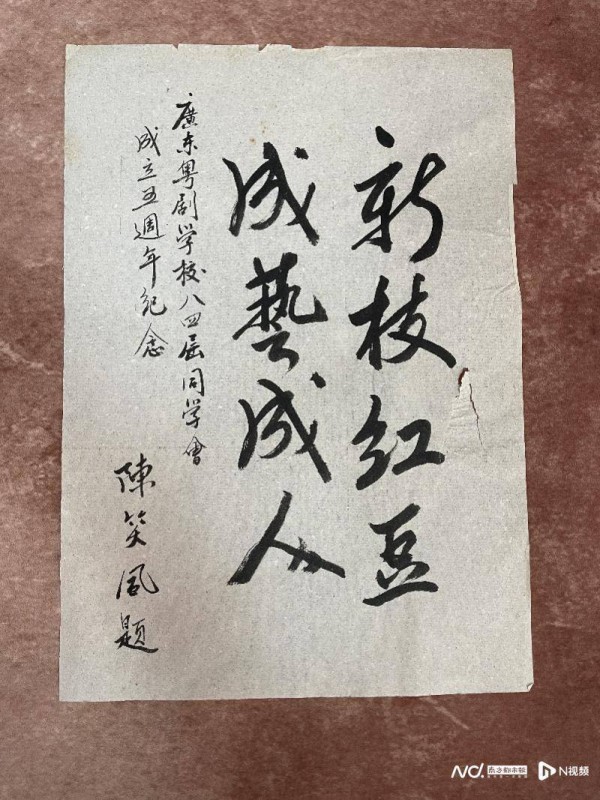 新枝红豆
成藝成人
廣东粤剧学校八四届同学會
成立五週年纪念
陳笑風題
N视频
南方都市报